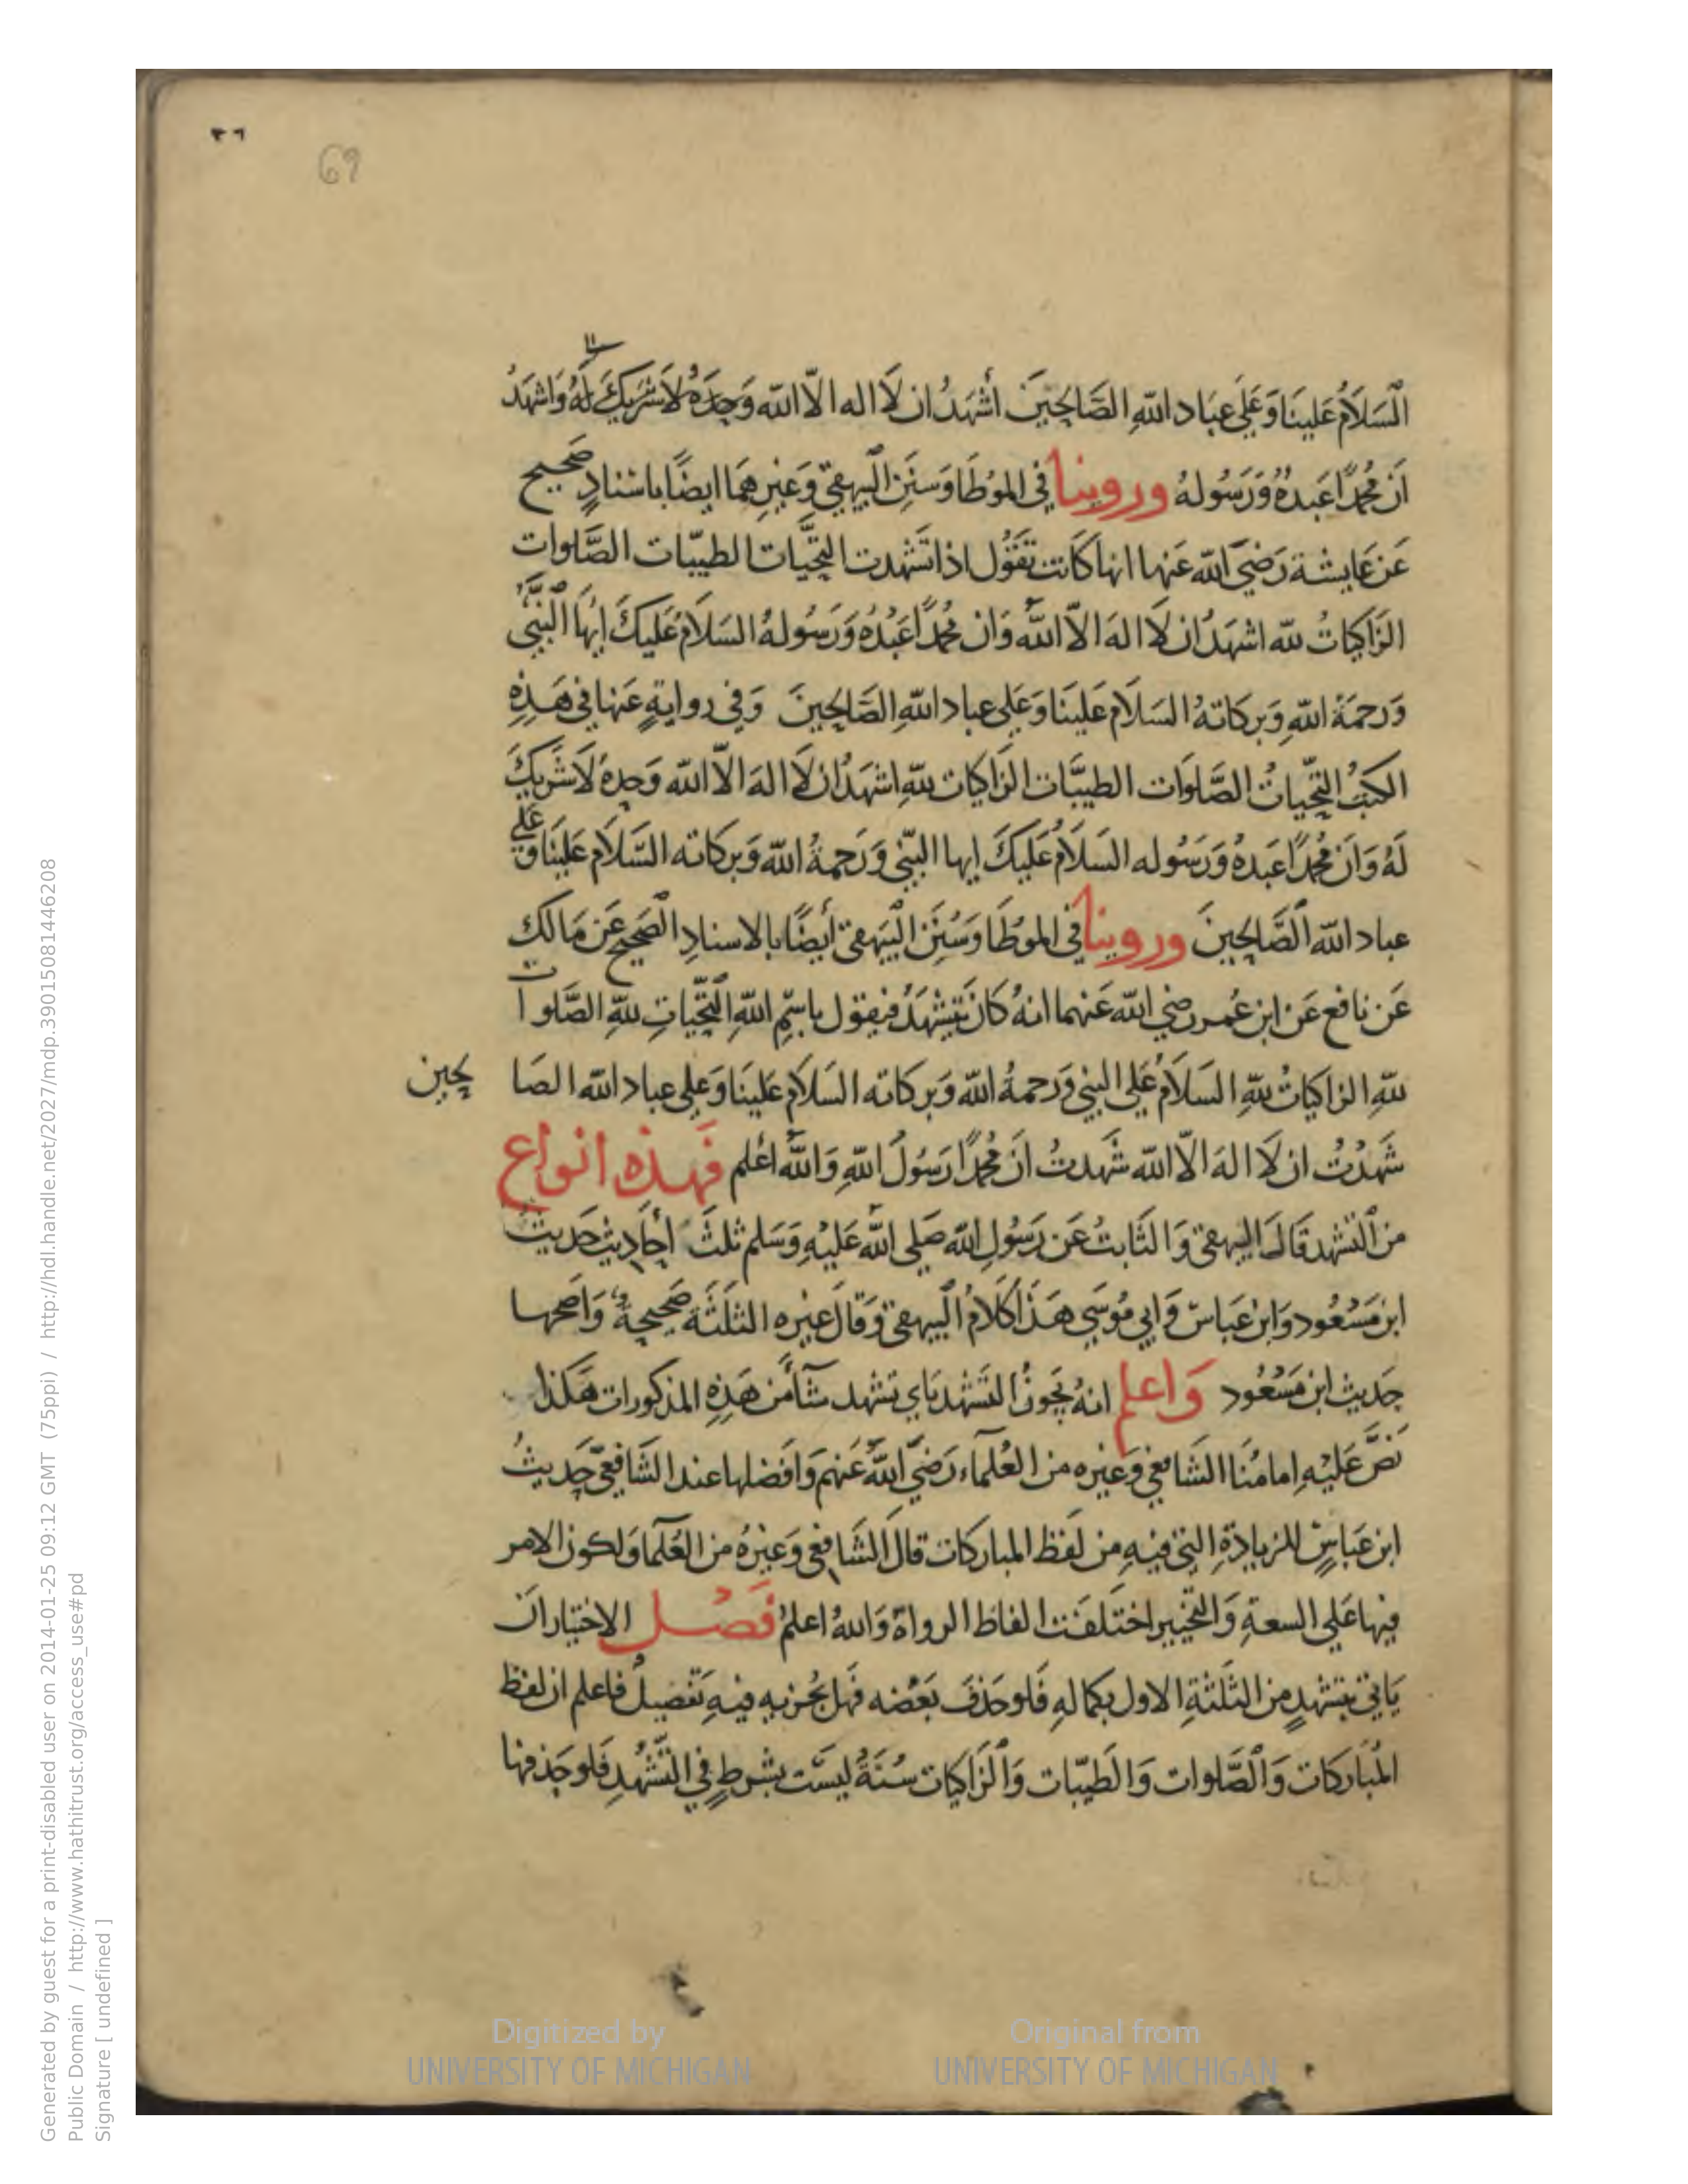 ٣٦
69
السَلَامُ عَلينَا وَعَلى عبَاد اللهِ الصَّالحِينَ أشهَدُ ان لَا اله الّا الله وَحدَهُ لَا شَريكَ لَهُ وَاشهَدُ
اَنّ مُحمدًا عَبدُهُ وَرَسُولهُ وروينا في الموُطَا وَسنَنِ البَيهقي وَغيرِهمَا ايضًا باسنادٍ صَحيح
عَن عَايشة رَضيَ الله عَنها انها كَانت تقَوُل اذا تشَهدت التحِيَّات الطيبّات الصَّلوات
الزَاكيَاتُ لله اشهَدُ ان لَا اله الّا اللهُ وَان مُحمدًا عَبْدُهُ وَرَسُولهُ السَلَامُ عَليكَ ايهَا النَّبيُّ
وَرَحمَةُ اللهِ وَبركاتهُ السَلَام عَلينَا وَعَلى عباد اللهِ الصَّالحِينَ وَفي روايةٍ عَنها في هَذِهِ
الكتبُ التحّياتُ الصَّلوَات الطيبَّات الزَاكيَات للهِ اشهَدُ ان لَا اله الّا الله وَحدهُ لَا شَريكَ
لَهُ وَان مُحمدًا عَبدُهُ وَرَسُوله السَلَامُ عَليكَ ايها النبّي وَرَحمةُ الله وَبركاته السَّلَام عَلينَا وَعلى
عباد الله الصَّالحِينَ وروينا في الموُطَا وَسُنَن البَيهَقي أيضًا بالاسنادِ الصَحيح عَن مَالك
عَن نافع عَن ابن عُمر رضي الله عَنهما انهُ كانَ يَتشهَدُ فيقول باسِمِ اللهِ التَّحيّاتِ للهِ الصَّلوات
للهِ الزاكيَاتُ للهِ السَلَامُ عَلى النبي وَرَحمةُ الله وَبركاته السَلَام عَلينَا وَعَلى عباد الله الصَا لحين
شَهدْتُ ان لَا اله الّا الله شَهدتُ اَنّ مُحمدًا رَسُولَ اللهِ وَاللهُ أعلم فَهذه انواع
من التشهد قَالَ البيهقي وَالثَابتُ عَن رَسُولِ الله صَلى اللهُ عَليْهِ وَسَلم ثلثَ أحَاديث حَديث
ابن مَسْعُود وَابن عَبَاس وَابي موُسَى هَذا كلَامُ البَيهقي وَقَال غيره الثلَثَة صَحيحةٌ وَاَصَحها
حَديث ابن مَسْعُود وَاعلم انهُ يَجوزُ التشَهد باي تشهد شآ من هَذِهِ المذكورات هَكذا
نصَّ عَليْهِ اِمامُنَا الشَافعي وَغيره من العُلمآء رَضيَ اللهُ عَنهم وَافضلها عند الشَافعيّ حَديثُ
ابن عَباسٍ للزيادَةِ التي فيهِ من لَفظ المباركات قالَ الشَافعي وَغيرهُ من العُلَمآ وَلكون الامر
فيها عَلى السعةِ وَالتخيير اختَلفَت الفاظ الرواة وَاللهُ اعلمُ فَصْل الاختيار اَن
يَاتي بتشهدٍ من الثلَثةِ الاول بكمالهِ فَلو حَذفَ بَعْضه فهَل يُجزيه فيهِ تفصيلٌ فاعلم ان لفظ
المُبَاركات وَالصَّلوات وَالطَيبّات وَالزَاكيَات سُنَةٌ ليسَت بشرطٍ في التشَّهُدِ فَلو حَذفها